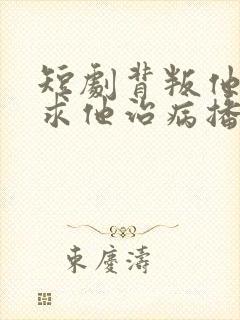 短劇背叛他
求他治病播
東慶濤